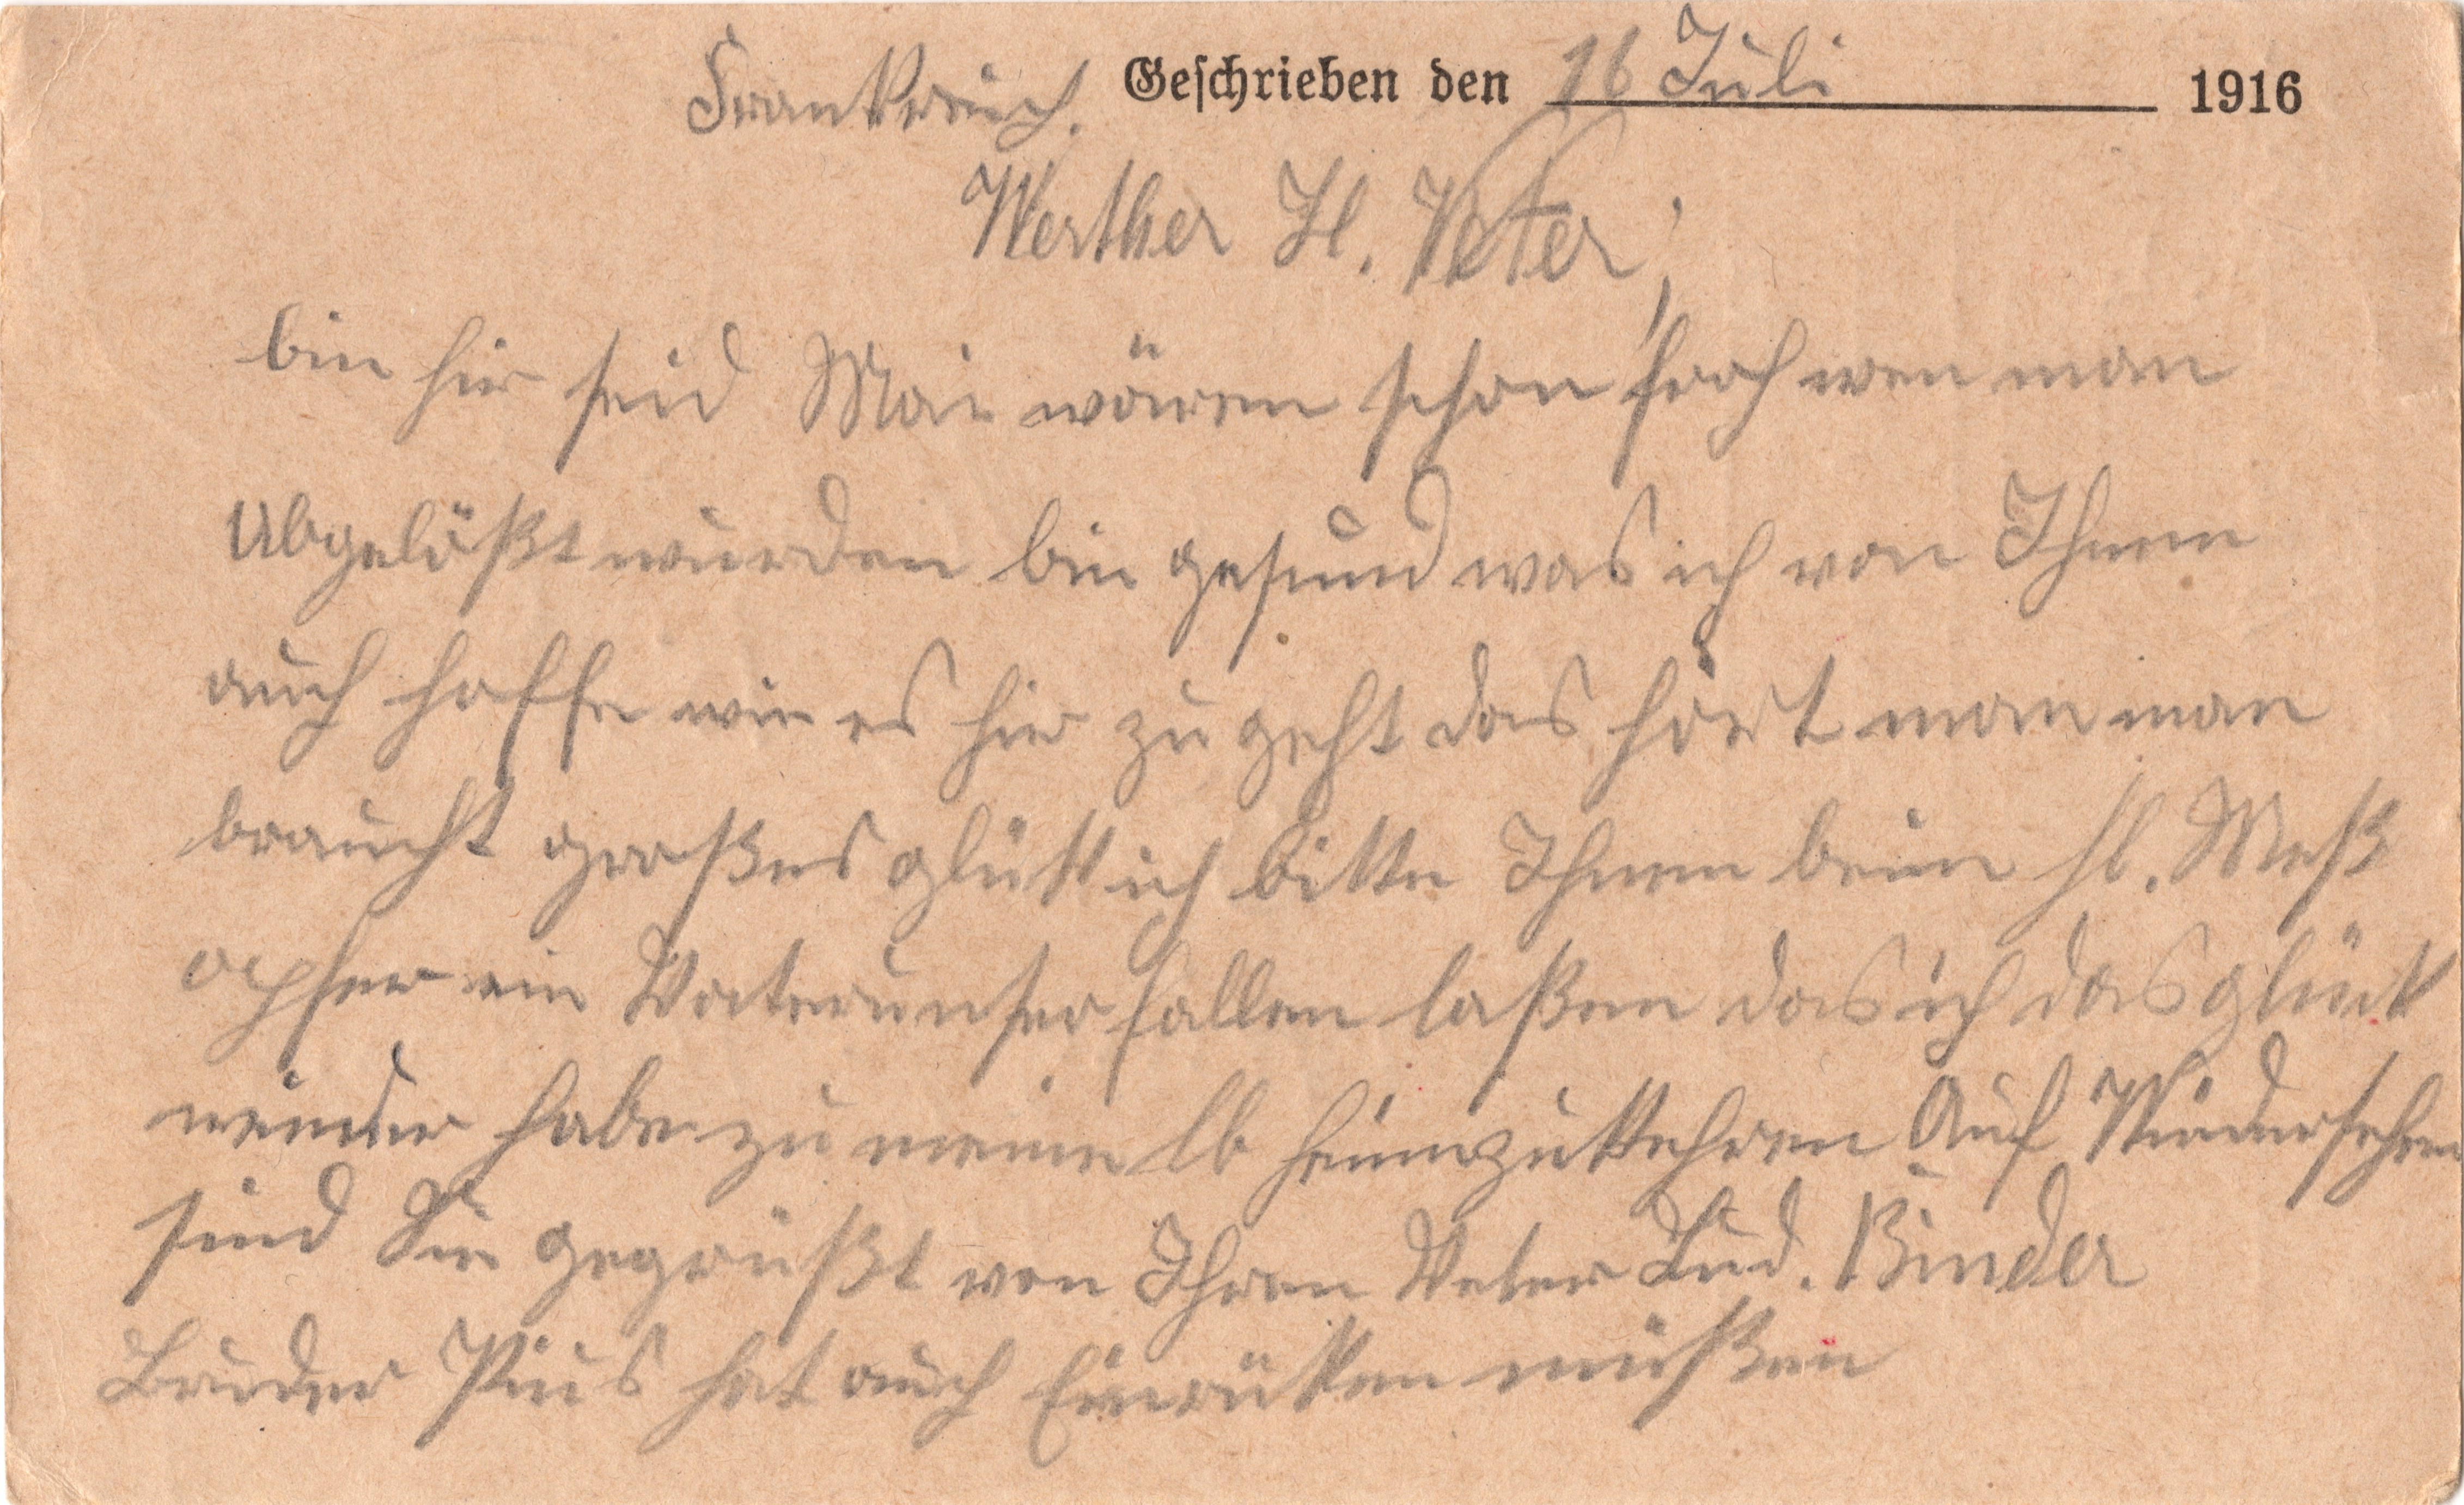 Frankreich. Geschrieben den 16 Juli 1916
Werther H. Veter,
bin hier seid Mai wären schon froh wen man
Abgelößt wurden bin gesund was ich von Ihnen
auch hoffe wie es hier zu geht das hört man man
braucht großes glükk ich bitte Ihnen beim hl. Meß
opfer ein Vaterunser fallen laßen das ich das glük
wieder habe zu meine lb heimzukkehren Auf Wiedersehen
sind Sie gegrüßt von Ihren Veter Lud. Binder
Bruder Pius hat auch Einrükken müßen